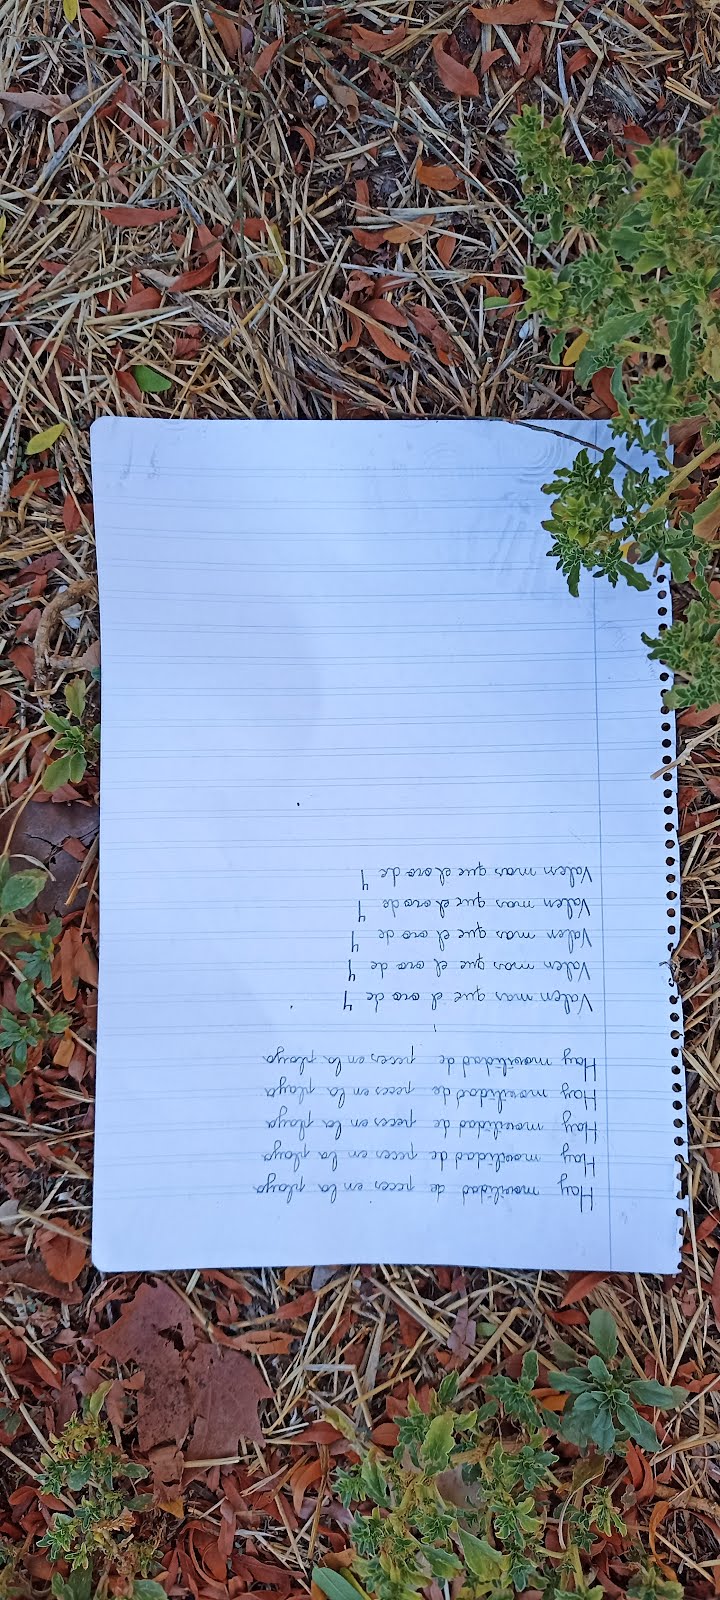 Hay movilidad de peces en la playa
Hay movilidad de peces en la playa
Hay movilidad de peces en la playa
Hay movilidad de peces en la playa
Hay movilidad de peces en la playa
Valen mas que el oro de 4
Valen mas que el oro de 4
Valen mas que el oro de 4
Valen mas que el oro de 4
Valen mas que el oro de 4